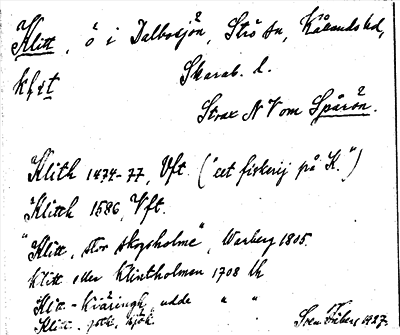 Klitt, ö i Dalbosjön, Strö sn, Kålands hd,
klɩt Skarab. l.
Strax NV om Spårön.
Klith 1474-77, Vft. ("eet fiskerij på K.")
Klitth 1586, Vft.
"Klitt, stor skogsholme", Warberg 1805.
Klitt eller Klintholmen 1708 lh
Klitt - udde " "
Klitt Sven 1927.